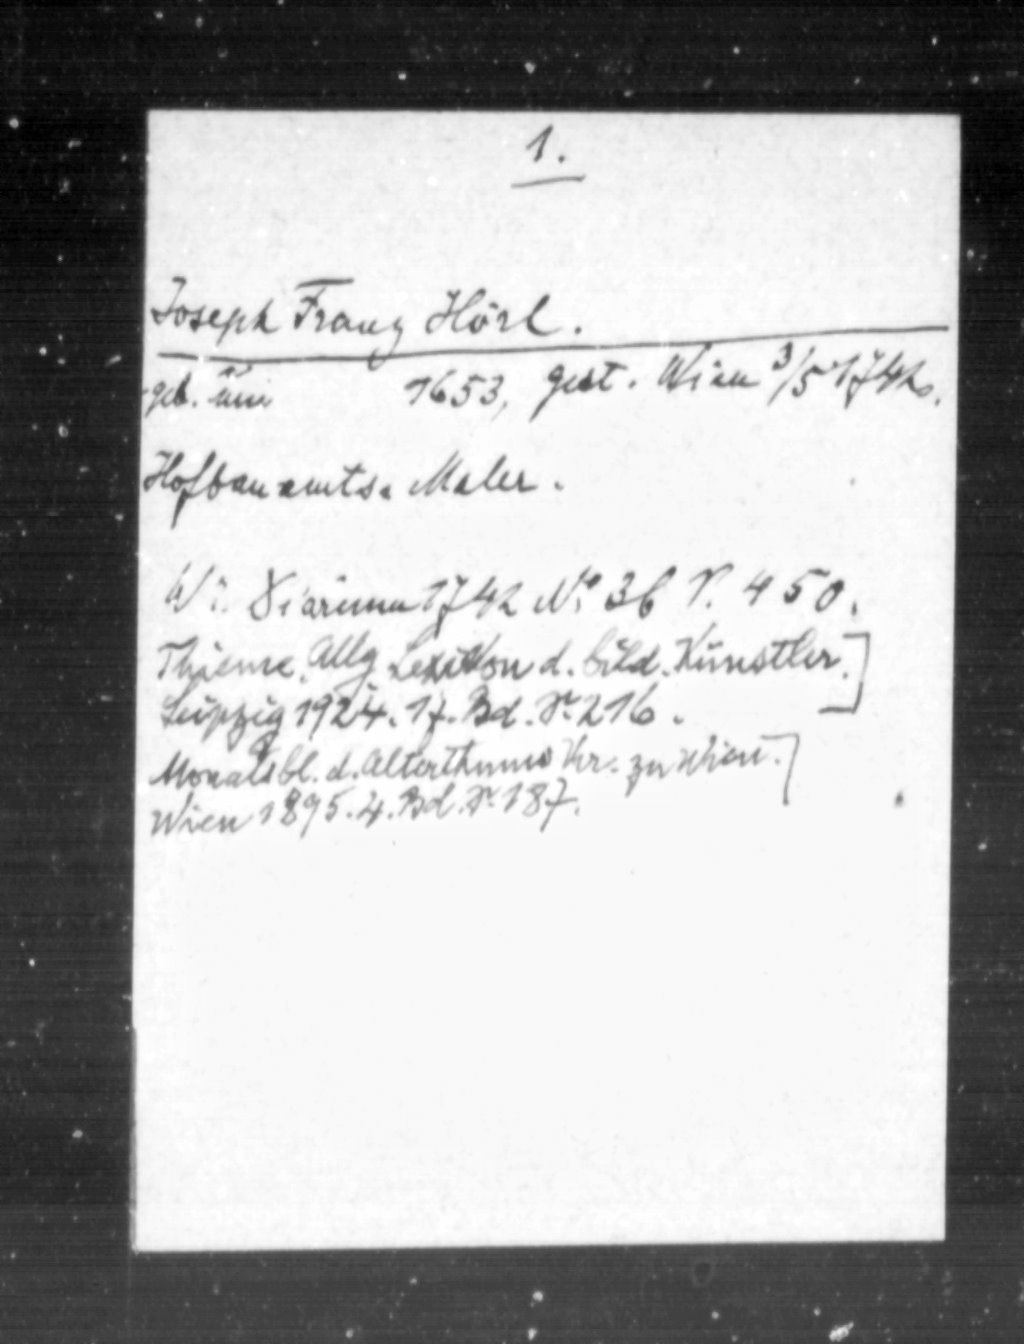 1.
Joseph Franz Hörl.
geb. um 1653, gest. Wien 3/5 1742.
Hofbauamts. Maler.
Wi. Diarium 1742 No 36 P. 450.
Thieme, Allg Lexikon d. bild. Künstler.]
Leipzig 1924. 17. Bd. Sr. 216.
Monatsbl. d. Alterthums Ver. zu Wien.]
Wien 1895. 4. Bd. Sr. 187.